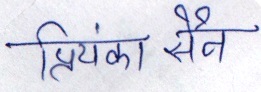 प्रियंका सैन